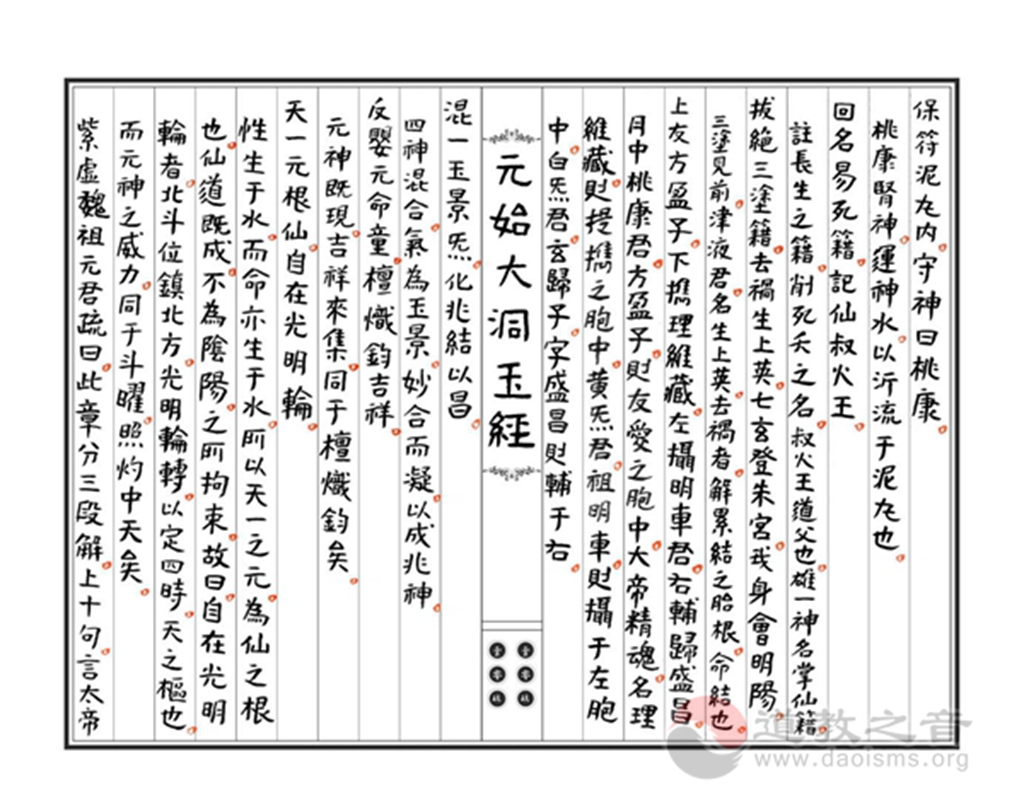 保符泥丸内守神曰桃康
桃康腎神運神水以沂流于泥丸也
回名易死籍記仙叔火王
註長生之籍削死夭之名叔火王道父也雄一神名掌仙籍
拔絕三塗籍去禍生上英七玄登朱宮我身會明陽
三塗見前津液君名生上英去禍者解累結之胎根命結也
上友方盈子下擕理維藏左攝明車君右輔歸盛昌
月中桃康君方盈子則友愛之胞中大帝精魂名理
維藏則提擕之胞中黄炁君祖明車則攝于左胞
中白炁君玄歸子字盛昌則輔于右
元始大洞玉經
混一玉景炁化兆結以昌
四神混合氣為玉景妙合而凝以成兆神
反嬰元命童檀熾鈞吉祥
元神既現吉祥來集同于檀熾鈞矣
天一元根仙自在光明輪
性生于水而命亦生于水所以天一之元為仙之根
也仙道既成不為陰陽之所拘束故曰自在光明
輪者北斗位鎮北方光明輪轉以定四時天之樞也
而元神之威力同于斗曜照灼中天矣
紫虛魏祖元君疏曰此章分三段解上十句言太帝
道教之音
www.daoisms.org